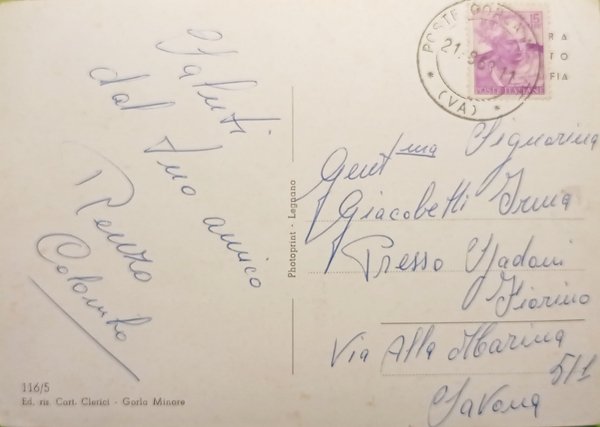 Saluti
dal tuo amico
Renzo
Colombo
116/5
Ed. ris. Cart. Clerici - Gorla Minore
Photoprint - Legnano
POSTE
21. 8.6
11
(VA)
15
POSTE ITALIANE
RA
TO
FIA
Gent.ma Signorina
Giacobetti Irma
Presso Spadoni
Fiorino
Via Alla Marina
5/1
Savona